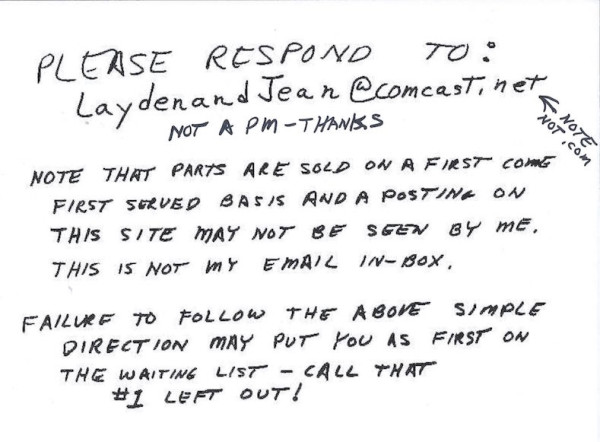 PLEASE RESPOND TO:
LaydenandJean@comcast.net
NOT A PM - THANKS
NOTE
NOT .com
NOTE THAT PARTS ARE SOLD ON A FIRST COME
FIRST SERVED BASIS AND A POSTING ON
THIS SITE MAY NOT BE SEEN BY ME.
THIS IS NOT MY EMAIL IN-BOX.
FAILURE TO FOLLOW THE ABOVE SIMPLE
DIRECTION MAY PUT YOU AS FIRST ON
THE WAITING LIST - CALL THAT
#1 LEFT OUT!